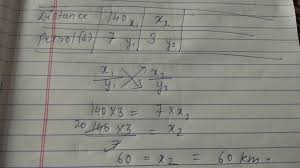 Distance 140 x₁ x₂
Petrol(l) 7 y₁ 3 y₂
x₁ x₂
y₁ y₂
140×3 = 7 × x₂
20 140 × 3 = x₂
7
60 = x₂ = 60 km.